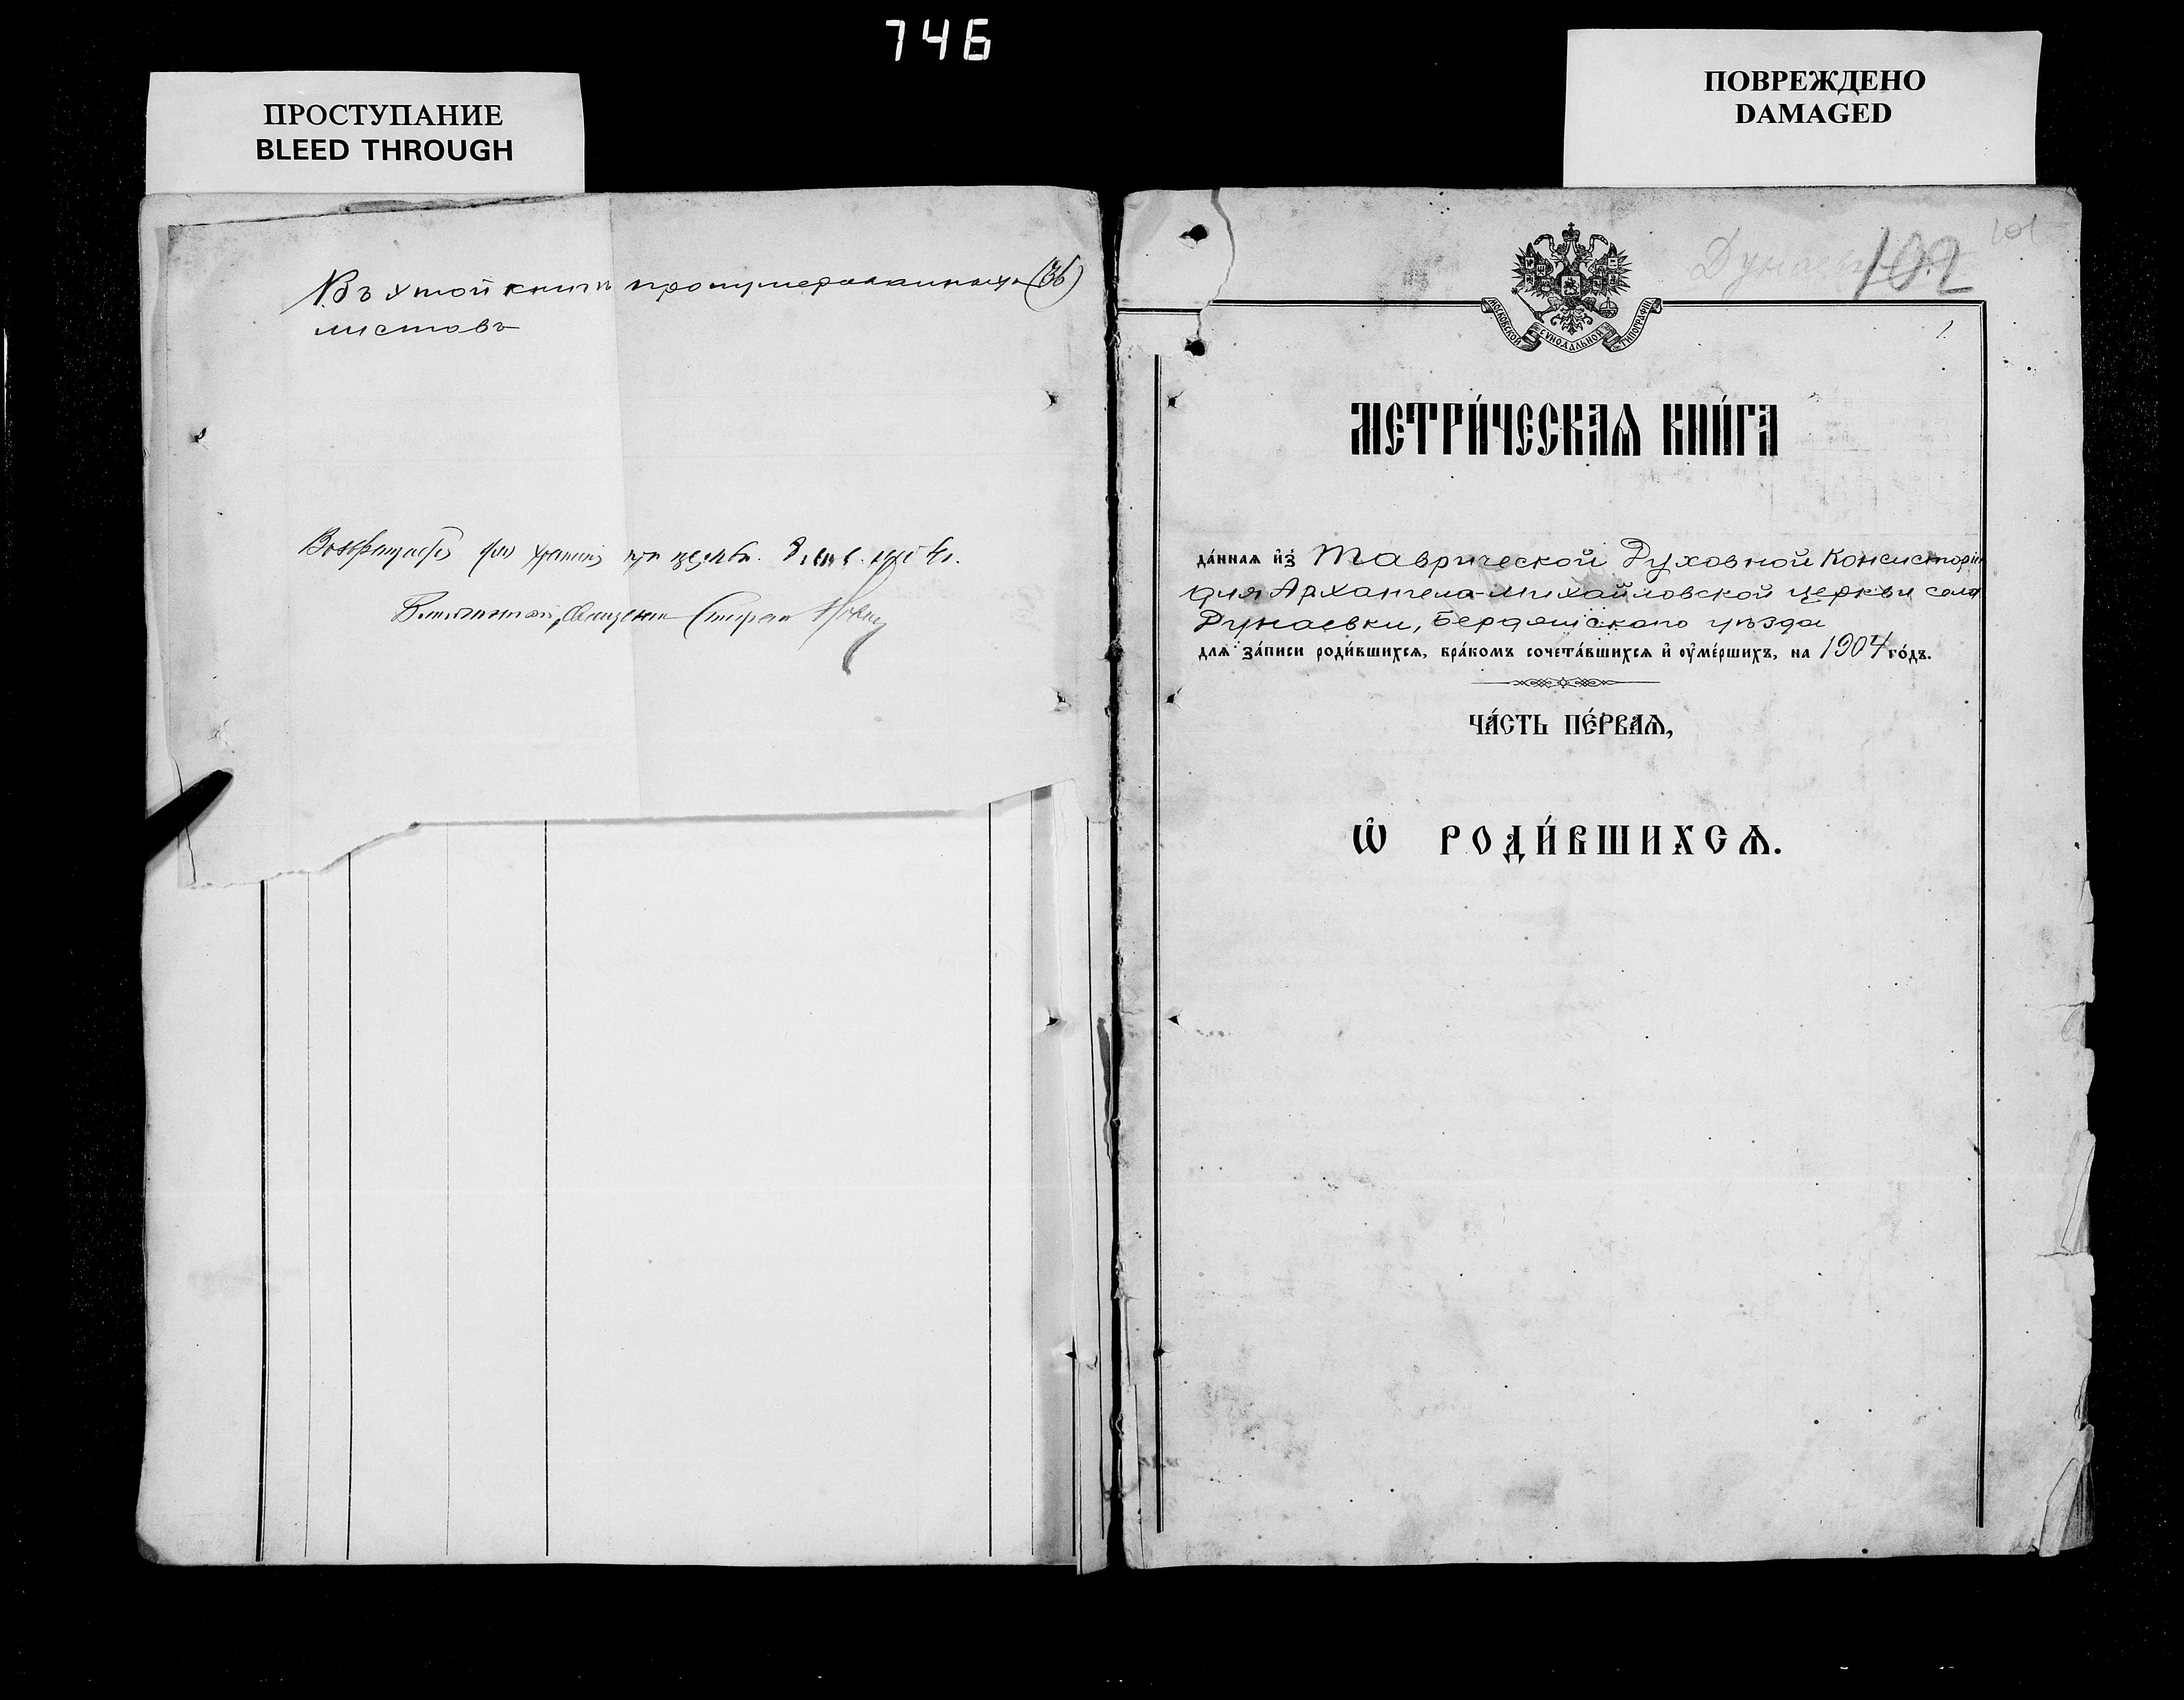 746
ПРОСТУПАНИЕ
BLEED THROUGH
ПОВРЕЖДЕНО
DAMAGED
Въ этой книгѣ пронумерованныхъ (36)
листовъ
при церкви.
Священникъ Стефан
102
101
1.
МОСКОВСКОЙ СѴНОДАЛЬНОЙ ТИПОГРАФІИ
МЕТРИ́ЧЕСКАѦ КНИ́ГА
да́ннаѧ и҆з̾ Таврической Духовной Консисторіи
для Архангело-Михайловской церкви села
Дунаевки, Бердянскаго уѣзда
для за́писи роди́вшихсѧ, бра́комъ сочета́вшихсѧ и҆ ᲂу҆ме́ршихъ, на 1904 го́дъ.
ЧА́СТЬ ПЕ́РВАѦ,
Ѡ҆ РОДИ́ВШИХСѦ.